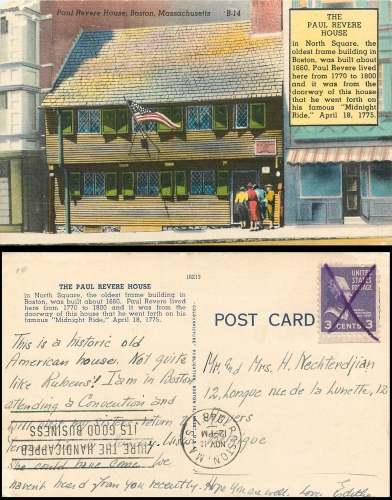 Paul Revere House, Boston, Massachusetts B-14
THE
PAUL REVERE
HOUSE
in North Square, the
oldest frame building in
Boston, was built about
1660. Paul Revere lived
here from 1770 to 1800
and it was from the
doorway of this house
that he went forth on
his famous "Midnight
Ride," April 18, 1775.
16213
THE PAUL REVERE HOUSE
in North Square, the oldest frame building in
Boston, was built about 1660. Paul Revere lived
here from 1770 to 1800 and it was from the
doorway of this house that he went forth on his
famous "Midnight Ride," April 18, 1775.
POST CARD
UNITED STATES
POSTAGE
3 CENTS 3
This is a historic old
American house. Not quite
like Rubens! I am in Boston
attending a Convention and
return
HIRE THE HANDICAPPED
ITS GOOD BUSINESS
She could have come. We
haven't heard from you recently. Hope you are well. Love. Edith
Mr. and Mrs. H. Nechterdjian
12, Longue rue de la Lunette, 12
BOSTON, MASS.
NOV 12
PM
1948